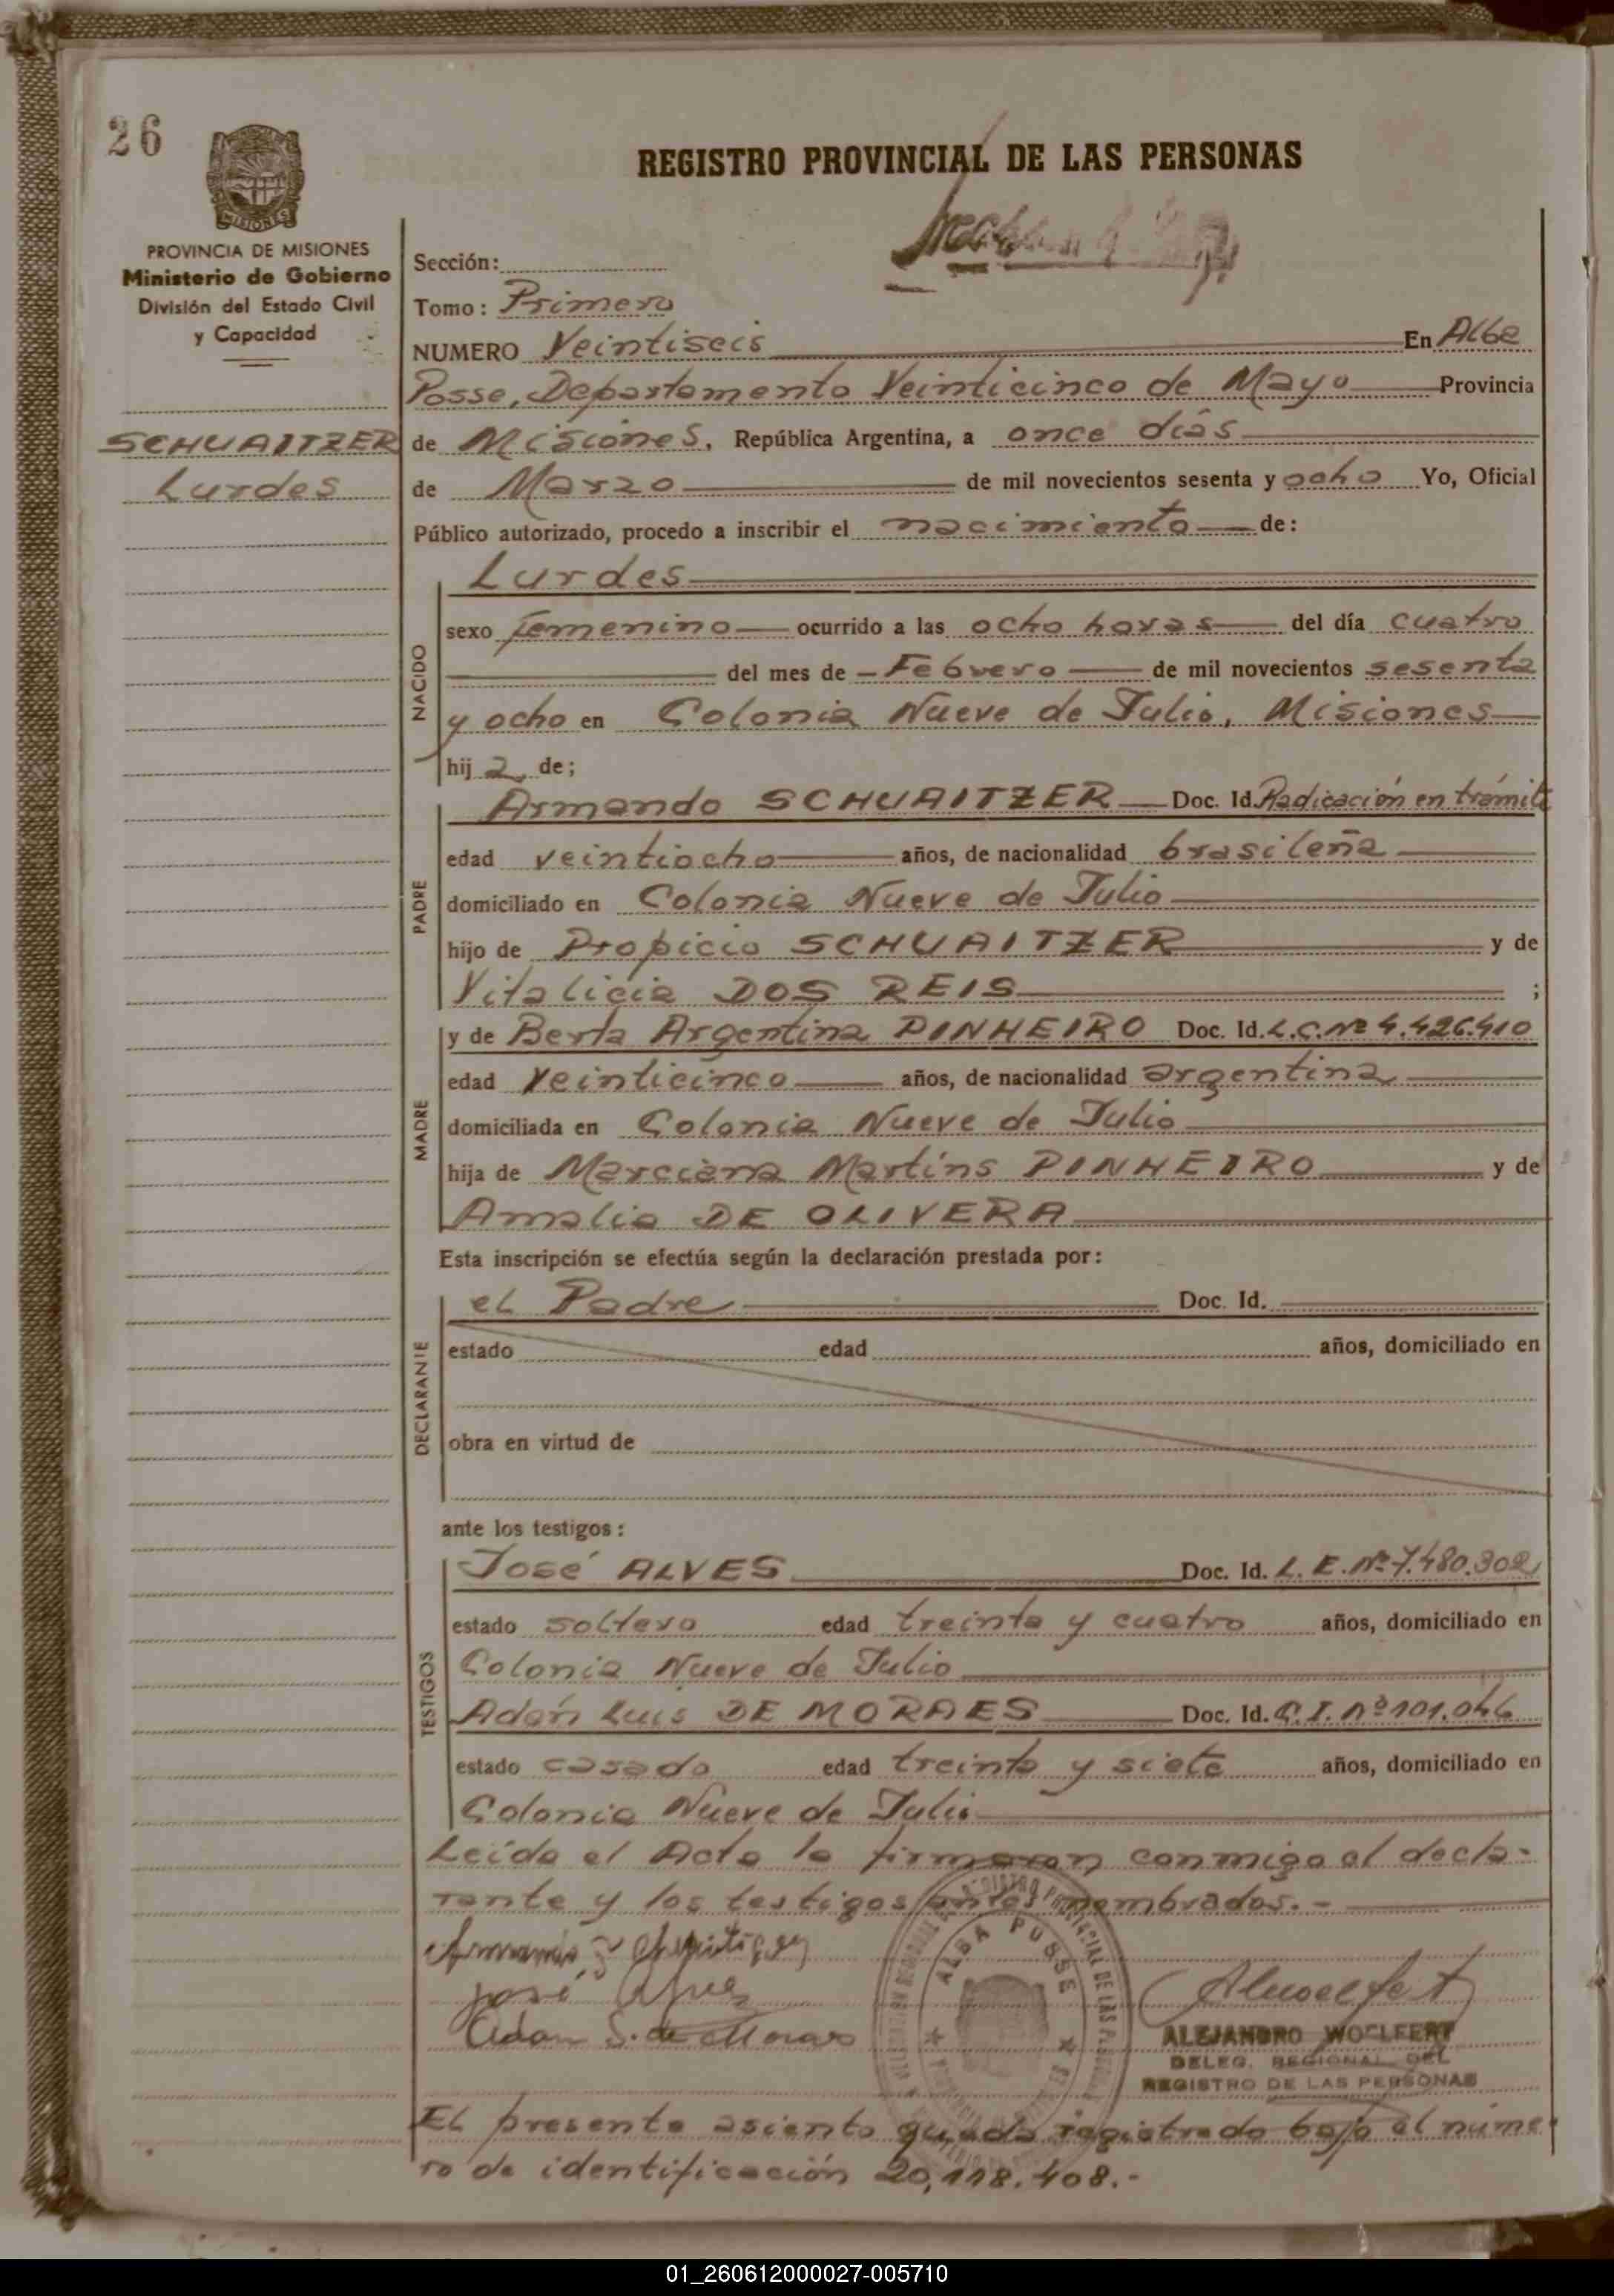 26
REGISTRO PROVINCIAL DE LAS PERSONAS
MISIONES
PROVINCIA DE MISIONES
Ministerio de Gobierno
División del Estado Civil
y Capacidad
SCHUAITZER
Lurdes
Sección:
Tomo: Primero
NUMERO Veintiseis En Alba
Posse, Departamento Veinticinco de Mayo Provincia
de Misiones, República Argentina, a once días
de Marzo de mil novecientos sesenta y ocho Yo, Oficial
Público autorizado, procedo a inscribir el nacimiento de:
NACIDO
Lurdes
sexo femenino ocurrido a las ocho horas del día cuatro
del mes de Febrero de mil novecientos sesenta
y ocho en Colonia Nueve de Julio, Misiones
hija de;
PADRE
Armando SCHUAITZER Doc. Id. Radicación en trámite
edad veintiocho años, de nacionalidad brasileña
domiciliado en Colonia Nueve de Julio
hijo de Propicio SCHUAITZER y de
Vitalicia DOS REIS ;
MADRE
y de Berta Argentina PINHEIRO Doc. Id. L.C. Nº 4.426.410
edad Veinticinco años, de nacionalidad argentina
domiciliada en Colonia Nueve de Julio
hija de Marciana Martins PINHEIRO y de
Amalia DE OLIVERA
Esta inscripción se efectúa según la declaración prestada por:
DECLARANTE
el Padre Doc. Id.
estado edad años, domiciliado en
obra en virtud de
ante los testigos:
TESTIGOS
José ALVES Doc. Id. L. E. Nº 7.480.302
estado soltero edad treinta y cuatro años, domiciliado en
Colonia Nueve de Julio
Adán Luis DE MORAES Doc. Id. C.I. Nº 101.046
estado casado edad treinta y siete años, domiciliado en
Colonia Nueve de Julio
Leída el Acta la firmaron conmigo el decla-
rante y los testigos antes nombrados.-
José Alves
Adan S. de Moraes
ALBA POSSE
ALEJANDRO WOELFERT
DELEG. REGIONAL DEL
REGISTRO DE LAS PERSONAS
El presente asiento queda registrado bajo el núme-
ro de identificación 20,118.408.-
01_260612000027-005710